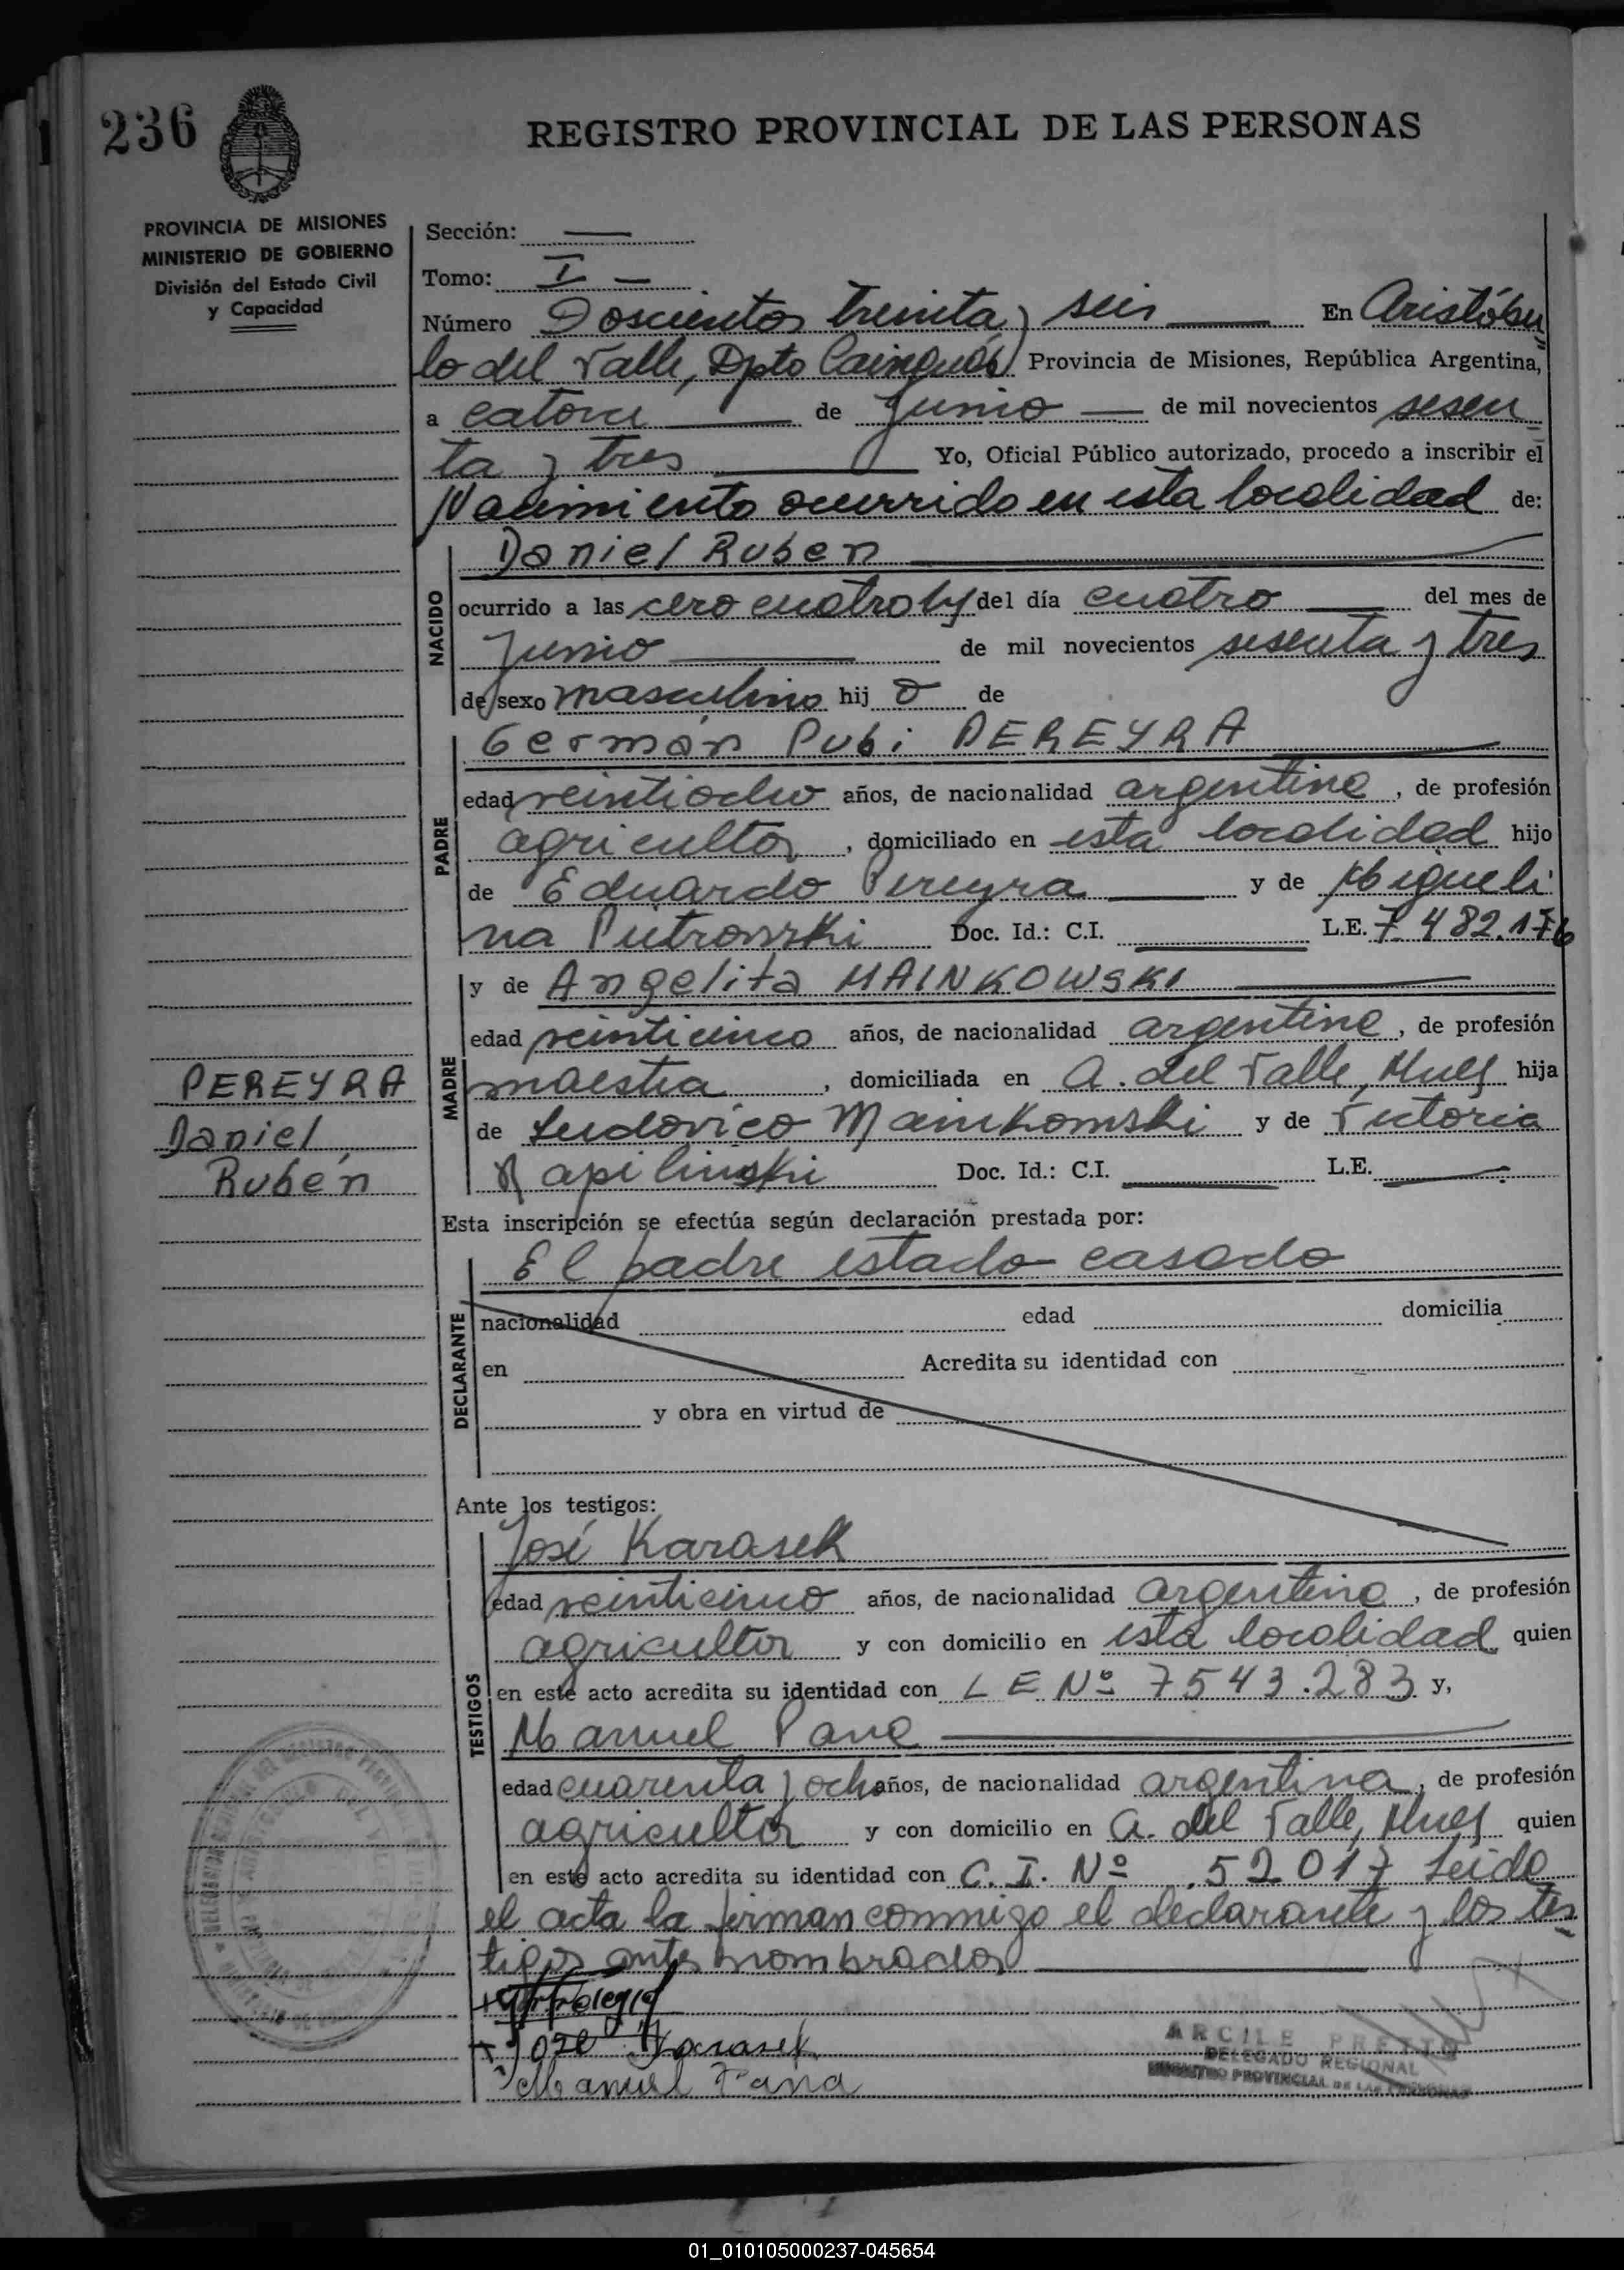 236
REGISTRO PROVINCIAL DE LAS PERSONAS
PROVINCIA DE MISIONES
MINISTERIO DE GOBIERNO
División del Estado Civil
y Capacidad
Sección: —
Tomo: I —
Número Doscientos treinta y seis — En Aristóbu
lo del Valle, Dpto Cainguás Provincia de Misiones, República Argentina,
a catorce — de Junio — de mil novecientos sesen
ta y tres — Yo, Oficial Público autorizado, procedo a inscribir el
Nacimiento ocurrido en esta localidad de:
NACIDO
Daniel Ruben
ocurrido a las cero cuatro hs del día cuatro — del mes de
Junio — de mil novecientos sesenta y tres
de sexo masculino hij o de
PADRE
Germán Pubi PEREYRA
edad veintiocho años, de nacionalidad argentina, de profesión
agricultor, domiciliado en esta localidad hijo
de Eduardo Pereyra — y de Migueli
na Putrowski Doc. Id.: C.I. — L.E. 7.482.176
MADRE
y de Angelita MAINKOWSKI —
edad veinticinco años, de nacionalidad argentina, de profesión
maestra, domiciliada en A. del Valle, Mnes hija
de Ludovico Mainkowski y de Victoria
Rapilinski Doc. Id.: C.I. — L.E. —
PEREYRA
Daniel
Rubén
Esta inscripción se efectúa según declaración prestada por:
DECLARANTE
El padre estado casado
nacionalidad edad domicilia
en Acredita su identidad con
y obra en virtud de
Ante los testigos:
TESTIGOS
José Karasek
edad veinticinco años, de nacionalidad argentina, de profesión
agricultor y con domicilio en esta localidad quien
en este acto acredita su identidad con L E Nº 7543.283 y,
Manuel Pana —
edad cuarenta y ocho años, de nacionalidad argentina, de profesión
agricultor y con domicilio en A. del Valle, Mnes quien
en este acto acredita su identidad con C. I. Nº 52017 Leida
el acta la firman conmigo el declarante y los tes
tigos antes nombrados —
José Karasek
Manuel Pana
ARCILE PRETTO
DELEGADO REGIONAL
REGISTRO PROVINCIAL DE LAS PERSONAS
01_010105000237-045654